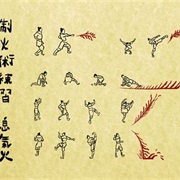 制火術練習 息氣火